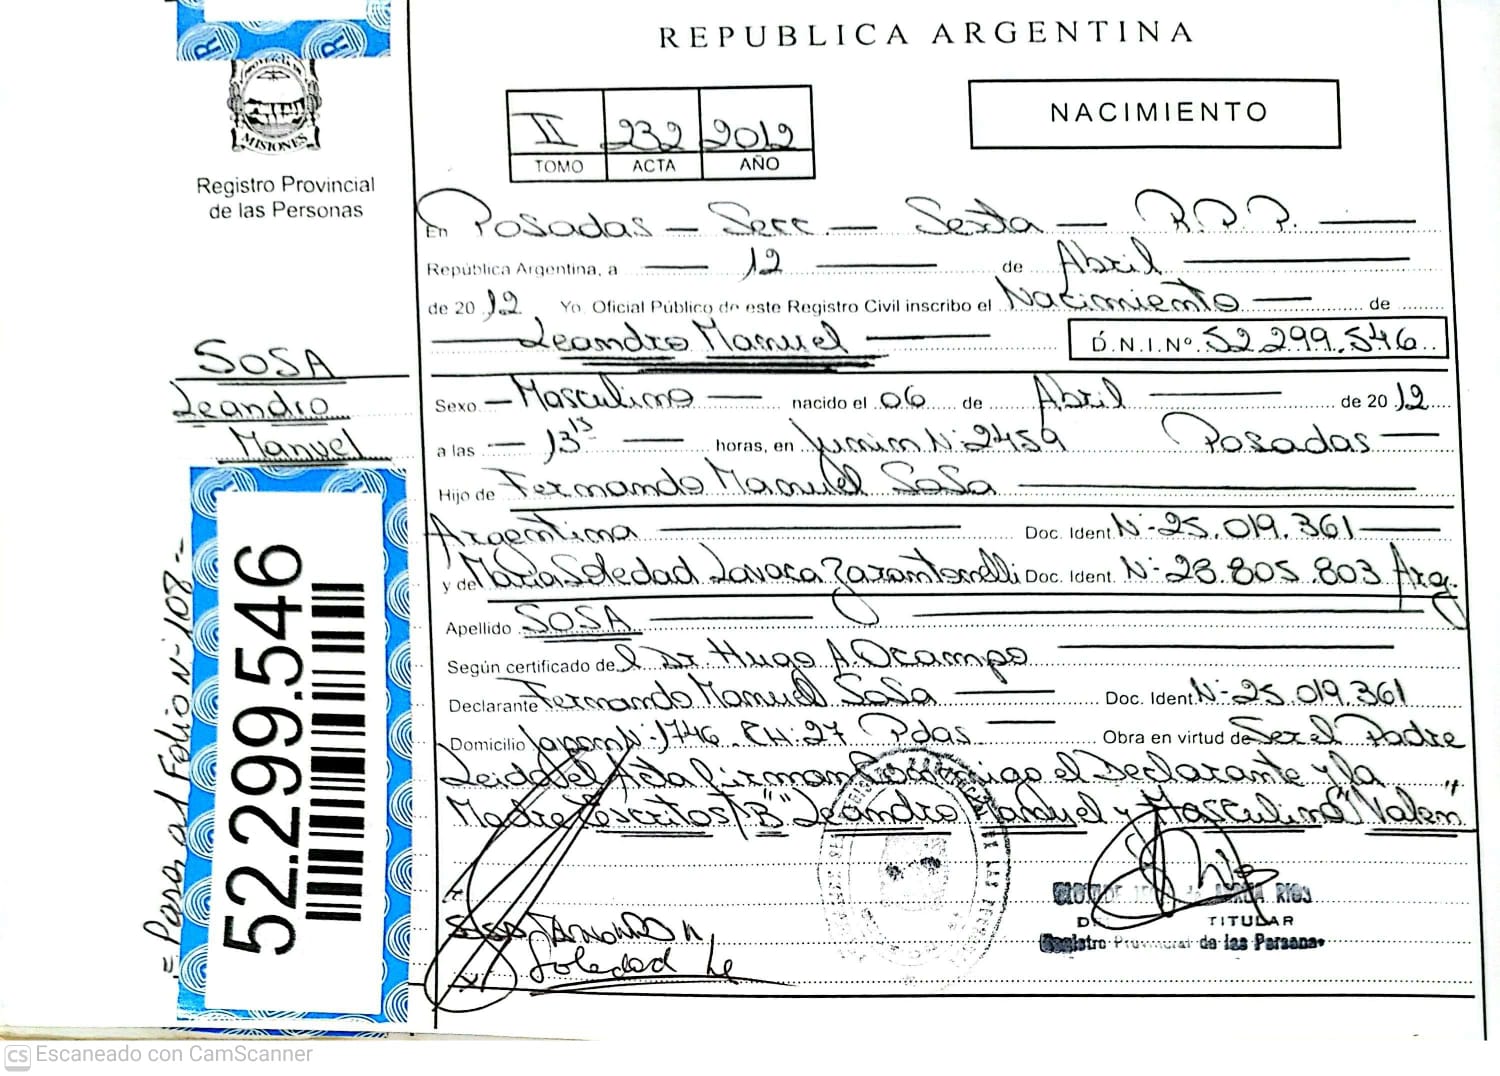 REPUBLICA ARGENTINA
MISIONES
Registro Provincial
de las Personas
II 232 2012
TOMO ACTA AÑO
NACIMIENTO
En Posadas — Secc. — Sexta — R.P.P. —
República Argentina, a — 12 — de Abril —
de 2012 Yo, Oficial Público de este Registro Civil inscribo el Nacimiento — de
— Leandro Manuel — D.N.I.Nº. 52.299.546
SOSA
Leandro
Manuel
Sexo — Masculino — nacido el 06 de Abril — de 2012
a las — 13 15 — horas, en Junin N: 2459 Posadas —
Hijo de Fernando Manuel Sosa —
Argentina — Doc. Ident. N- 25.019.361 —
y de Maria Soledad Lavaca Zarantonelli Doc. Ident. N- 28.805.803 Arg.
Apellido SOSA —
Según certificado del Dr Hugo A. Ocampo —
Declarante Fernando Manuel Sosa — Doc. Ident. N- 25.019.361
Domicilio Japon N- 1746 CH: 27 Pdas — Obra en virtud de Ser el Padre
Leida el Acta firman conmigo el Declarante y la
Madre Escritos/B "Leandro Manuel y Masculino" Valen"
= Pasa al Folio N- 108 --
52.299.546
TITULAR
Registro Provincial de las Personas
Soledad
CS Escaneado con CamScanner